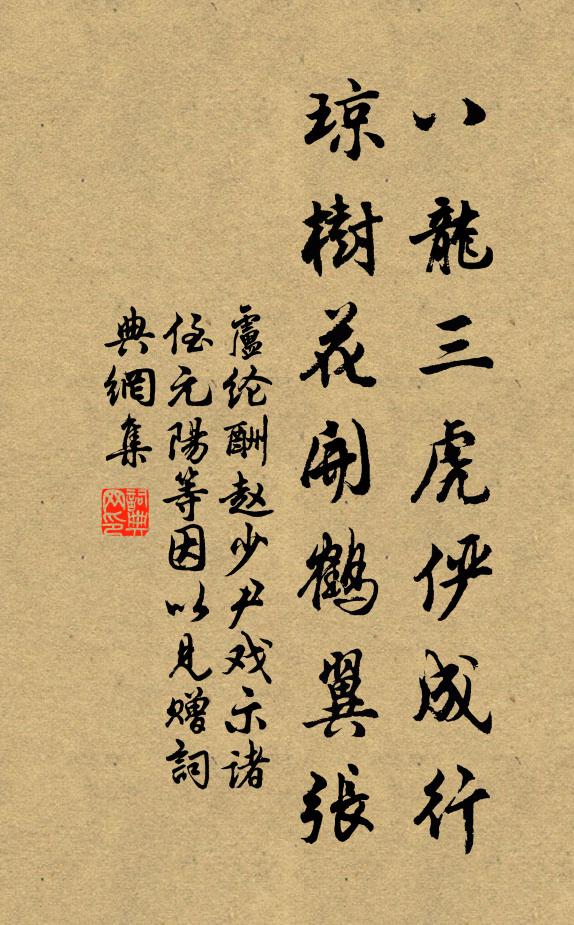 八龍三虎俨成行
琼樹花開鹤翼張
盧纶酬赵少尹戏示诸
侄元陽等因以見赠詞
典網集
詞典
网印